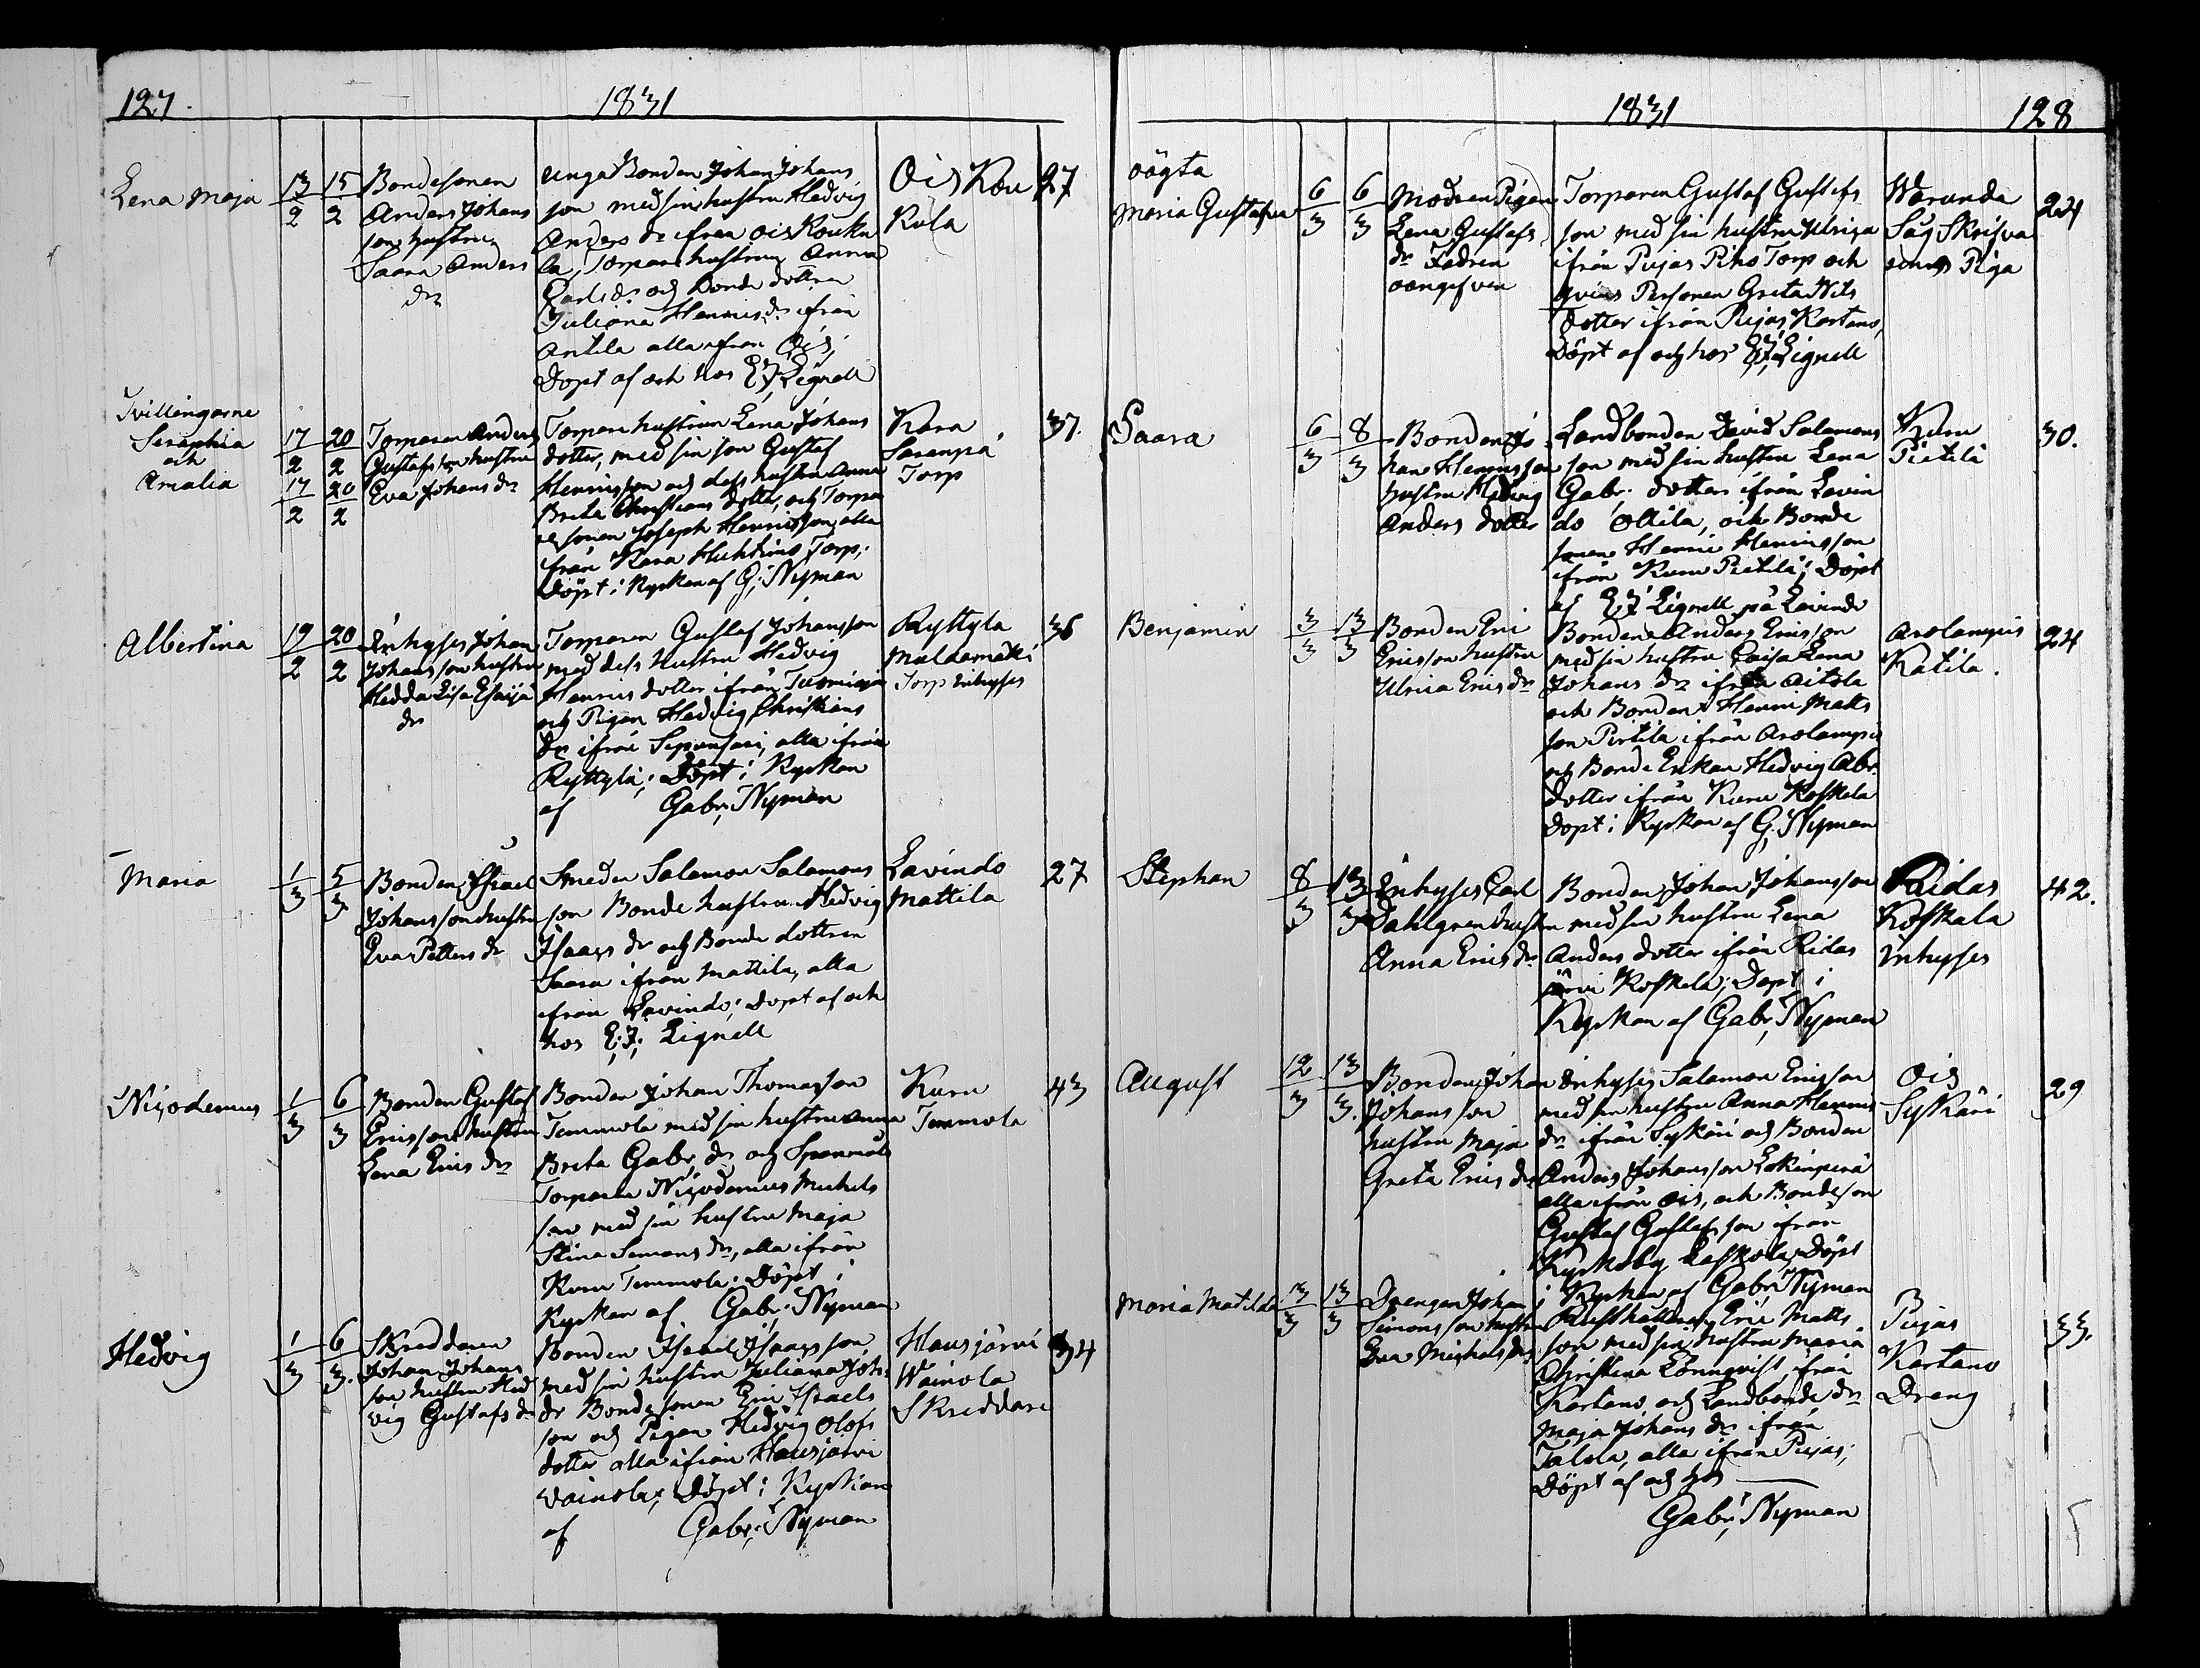 127.
1831
Lena Maja
13/2 15/2
Bondesonen
Anders Johans
son hustru
Saara Anders
dr
Unga Bonden Johan Johans
son med sin hustru Hedvig
Anders dr ifrån Ois Kouku
la, Torpare hustrun Anna
Carls dr och Bonde dottren
Juliana Henrics dr ifrån
Antila alla ifrån Ois,
Döpt af och hos E; J; Lignell
Ois Kou
Kula
27
Tvillingarne
Seraphia
och
Amalia
17/2 20/2
17/2 20/2
Torparen Anders
Gustafsson hustru
Eva Johans dr
Torpare hustrun Lena Johans
dotter, med sin son Gustaf
Henricsson och dess hustru Anna
Brita Christians dotter, och Torpa
re sonen Joseph Henricsson, alla
från Kara Huhtimo Torp;
Döpt i Kyrkan af G; Nyman
Kara
Saranpä
Torp
37.
Albertina
19/2 20/2
Inhyses Johan
Johansson hustru
Hedda Lisa Esaija
dr
Torparen Gustaf Johansson
med dess hustru Hedvig
Henrics dotter ifrån Tuomioja
och Pigan Hedvig Christians
dr ifrån Sepänsaari, alla ifrån
Ryttylä; Döpt i Kyrkan
af Gabr; Nyman
Ryttyla
Muldamäki
Torp Inhyses
36
Maria
1/3 5/3
Bonden Israel
Johansson hustru
Eva Petters dr
Smeden Salamon Salamons
son Bonde hustrun Hedvig
Isaacs dr och Bonde dottren
Saara ifrån Mattila, alla
ifrån Lavindo; Döpt af och
hos E; J; Lignell
Lavindo
Mattila
27
Nicodemus
1/3 6/3
Bonden Gustaf
Ericsson hustru
Lena Erics dr
Bonden Johan Thomasson
Temmola med sin hustru Anna
Brita Gabr; dr och Spannmåls
Torparen Nicodemus Michels
son med sin hustru Maja
Stina Simons dr, alla ifrån
Kuru Temmola; Döpt i
Kyrkan af Gabr; Nyman
Kuru
Temmola
43
Hedvig
1/3 6/3.
Skreddaren
Johan Johans
son hustru Hed
vig Gustafs dr
Bonden Israel Isaacsson,
med sin hustru Juliana Joh:
dr Bonde sonen Eric Israels
son och Pigan Hedvig Olofs
dotter alla ifrån Hausjärvi
Wainola; Döpt i Kyrkan
af Gabr; Nyman
Hausjärvi
Wainola
Skreddare
34
1831
128
oägta
Maria Gustafva
6/3 6/3
Modren Pigan
Lena Gustafs
dr Fadren
oangifven
Torparen Gustaf Gustafs
son med sin hustru Ulrica
ifrån Pujas Piho Torp och
qvins Personen Greta Nils
Dotter ifrån Pujas Kartano,
Döpt af och hos E; J; Lignell
Waranda
Såg Skrifva
rens Piga
24
Saara
6/3 8/3
Bonden Jo
han Henricsson
hustru Hedvig
Anders dotter
Landbonden David Salamons
son med sin hustru Lena
Gabr. dotter ifrån Lavin
do Ollila, och Bonde
sonen Henric Henricsson
ifrån Kuru Pietilä; Döpt
af E; J Lignell på Lavindo
Kuru
Pietilä
30.
Benjamin
3/3 13/3
Bonden Eric
Ericsson hustru
Ulrica Erics dr
Bonden Anders Ericsson
med sin hustru Caisa Lena
Johans dr ifrån Aitola
och Bonden Henric Matts
son Pietilä ifrån Arolampi
och Bonde Enkan Hedvig Abr:
dotter ifrån Kuru Koskela
Döpt i Kyrkan af G; Nyman
Arolampis
Katila.
24
Stephan
8/3 13/3
Inhyses Carl
Dahlgren hustru
Anna Erics dr
Bonden Johan Johansson
med sin hustru Lena
Anders dotter ifrån Ridas
järvi Koskela; Döpt i
Kyrkan af Gabr; Nyman
Ridas
Koskala
inhyses
42.
August
12/3 13/3.
Bonden Johan
Johansson
hustru Maja
Greta Erics dr
Inhyses Salamon Ericsson
med sin hustru Anna Henrics
dr ifrån Sykäri och Bonden
Anders Johansson Lokinperä
alla ifrån Ois, och Bondeson
Gustaf Gustafsson ifrån
Kyrkoby Laskola; Döpt
i Kyrkan af Gabr; Nyman
Ois
Sykäri
29
Maria Matilda
13/3 13/3
Drengen Johan
Simonsson hustru
Eva Michels dr
Rusthållaren Eric Matts
son med sin hustru Maria
Christina Lönnqvist, ifrån
Kartano, och Landbonde dr
Maja Johans dr ifrån
Talola, alla ifrån Pujas;
Döpt af och hos
Gabr; Nyman
Pujas
Kartano
Dreng
33.